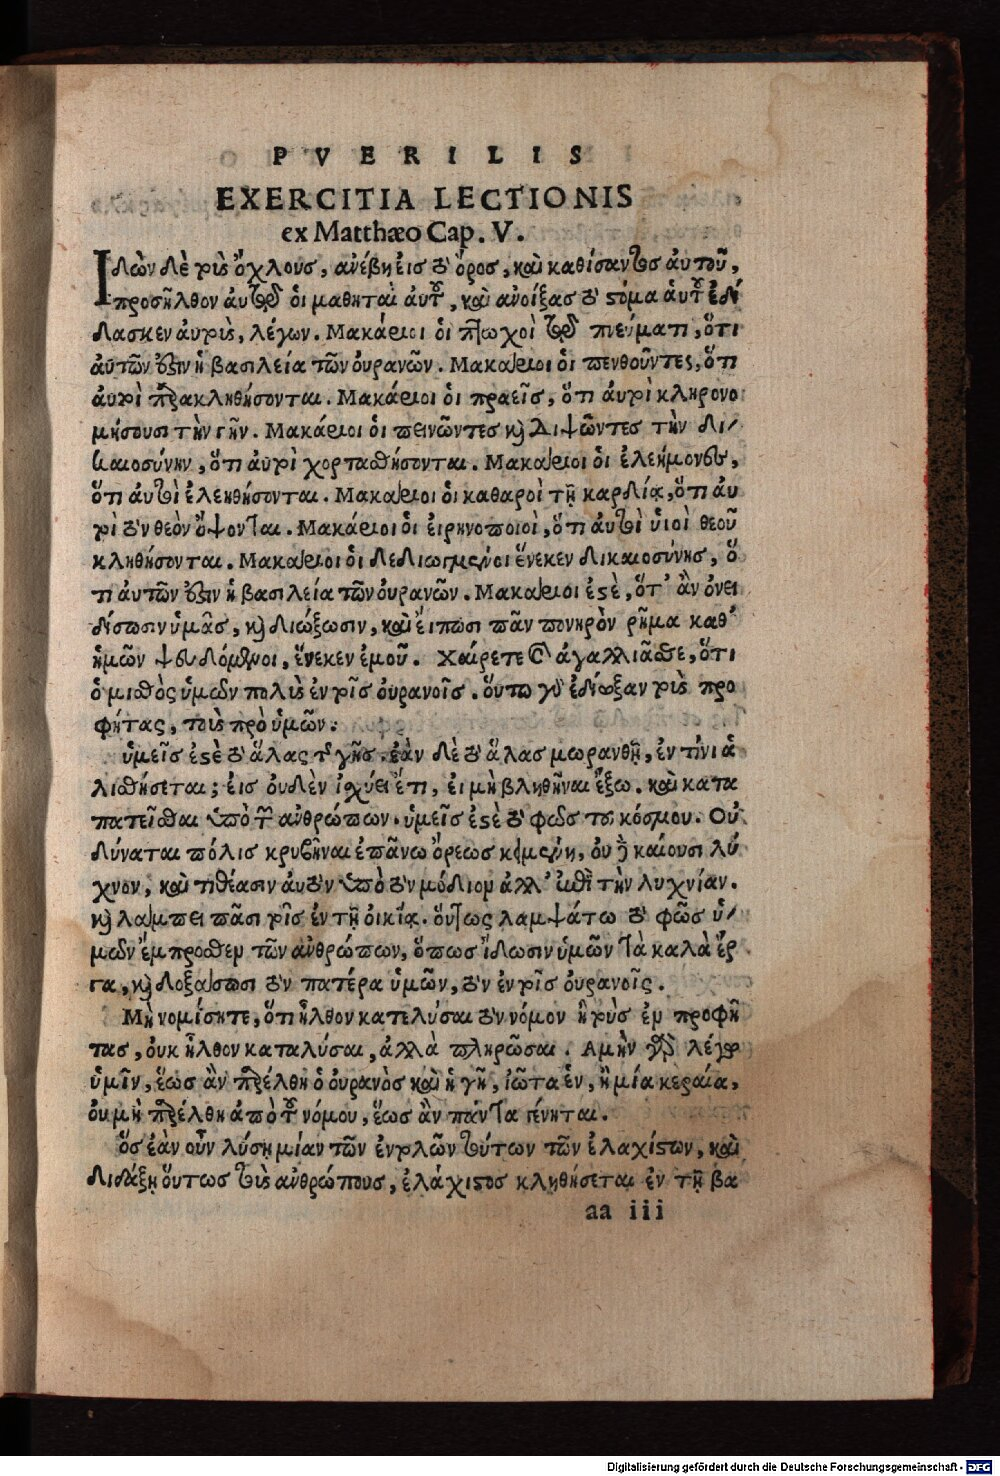 PVERILIS
EXERCITIA LECTIONIS
ex Matthæo Cap. V.
Ιδὼν δὲ τοὺς ὄχλους, ἀνέβη εἰς τὸ ὄρος, καὶ καθίσαντος ἀυτοῦ,
προσῆλθον ἀυτῷ ὁι μαθηταὶ ἀυτοῦ, καὶ ἀνοίξας τὸ στόμα ἁυτοῦ ἐδί
δασκεν ἀυτοὺς, λέγων. Μακάριοι ὁι πτωχοὶ τῷ πνεύματι, ὅτι
ἀυτῶν ἐστιν ἡ βασιλεία τῶν ὀυρανῶν. Μακάριοι ὁι πενθοῦντες, ὅτι
ἀυτοὶ παρακληθήσονται. Μακάριοι ὁι πραεῖς, ὅτι ἀυτοὶ κληρονο
μήσουσι τὴν γῆν. Μακάριοι ὁι πεινῶντες καὶ διψῶντες τὴν δι/
καιοσύνην, ὅτι ἀυτοὶ χορτασθήσονται. Μακάριοι ὁι ἐλεήμονες,
ὅτι ἀυτοὶ ἐλεηθήσονται. Μακάριοι ὁι καθαροὶ τῇ καρδίᾳ, ὅτι ἀυ
τοὶ τὸν θεὸν ὄψονται. Μακάριοι ὁι ἐιρηνοποιοὶ, ὅτι ἀυτοὶ ὑιοὶ θεοῦ
κληθήσονται. Μακάριοι ὁι δεδιωγμένοι ἕνεκεν δικαιοσύνης, ὅ
τι ἀυτῶν ἐστιν ἡ βασιλεία τῶν ὀυρανῶν. Μακάριοι ἐστὲ, ὅτ' ἂν ὀνει
δίσωσιν ὑμᾶς, καὶ διώξωσιν, καὶ ἔιπωσι πᾶν πονηρὸν ῥῆμα καθ'
ἡμῶν ψευδόμενοι, ἕνεκεν ἐμοῦ. Χαίρετε καὶ ἀγαλλιᾶσθε, ὅτι
ὁ μισθὸς ὑμῶν πολὺς ἐν τοῖς ὀυρανοῖς. ὅυτω γὰρ ἐδίωξαν τοὺς προ
φήτας, τοὺς πρὸ ὑμῶν.
ὑμεῖς ἐστὲ τὸ ἅλας τῆς γῆς. ἐὰν δὲ τὸ ἅλας μωρανθῇ, ἐν τίνι ἁ
λισθήσεται; ἐις ὀυδὲν ἰσχύει ἔτι, ἐι μὴ βληθῆναι ἔξω. καὶ κατα
πατεῖσθαι ὑπὸ τῶν ἀνθρώπων. ὑμεῖς ἐστὲ τὸ φῶς τοῦ κόσμου. Οὐ
δύναται πόλις κρυβῆναι ἐπάνω ὄρεως κειμένη, ὀυ δὲ καίουσι λύ
χνον, καὶ τιθέασιν ἀυτὸν ὑπὸ τὸν μόδιον ἀλλ' ἐπὶ τὴν λυχνίαν.
καὶ λάμπει πᾶσι τοῖς ἐν τῇ ὀικίᾳ. ὅυτως λαμψάτω τὸ φῶς ὑ/
μῶν ἔμπροσθεν τῶν ἀνθρώπων, ὅπως ἴδωσιν ὑμῶν τὰ καλὰ ἔρ
γα, καὶ δοξάσωσι τὸν πατέρα ὑμῶν, τὸν ἐν τοῖς ὀυρανοῖς.
Μὴ νομίσητε, ὅτι ἦλθον καταλύσαι τὸν νόμον ἢ τοὺς ἐμ προφή
τας, ὀυκ ἦλθον καταλύσαι, ἀλλὰ πληρῶσαι. Αμὴν γὰρ λέγω
ὑμῖν, ἕως ἂν παρέλθῃ ὁ ὀυρανὸς καὶ ἡ γῆ, ἰῶτα ἑν, ἢ μία κεραία,
ὀυ μὴ παρέλθῃ ἀπὸ τοῦ νόμου, ἕως ἂν πάντα γένηται.
ὃς ἐὰν οὖν λύσῃ μίαν τῶν ἐντολῶν τούτων τῶν ἐλαχίστων, καὶ
διδάξῃ ὅυτως τοὺς ἀνθρώπους, ἐλάχιστος κληθήσεται ἐν τῇ βα
aa iii
Digitalisierung gefördert durch die Deutsche Forschungsgemeinschaft - DFG